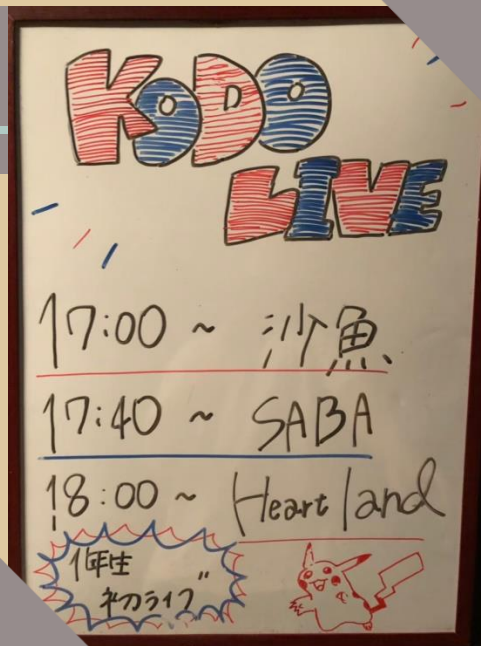 KODO
LIVE
17:00 ~ 沙魚
17:40 ~ SABA
18:00 ~ Heartland
1年生
初ライブ